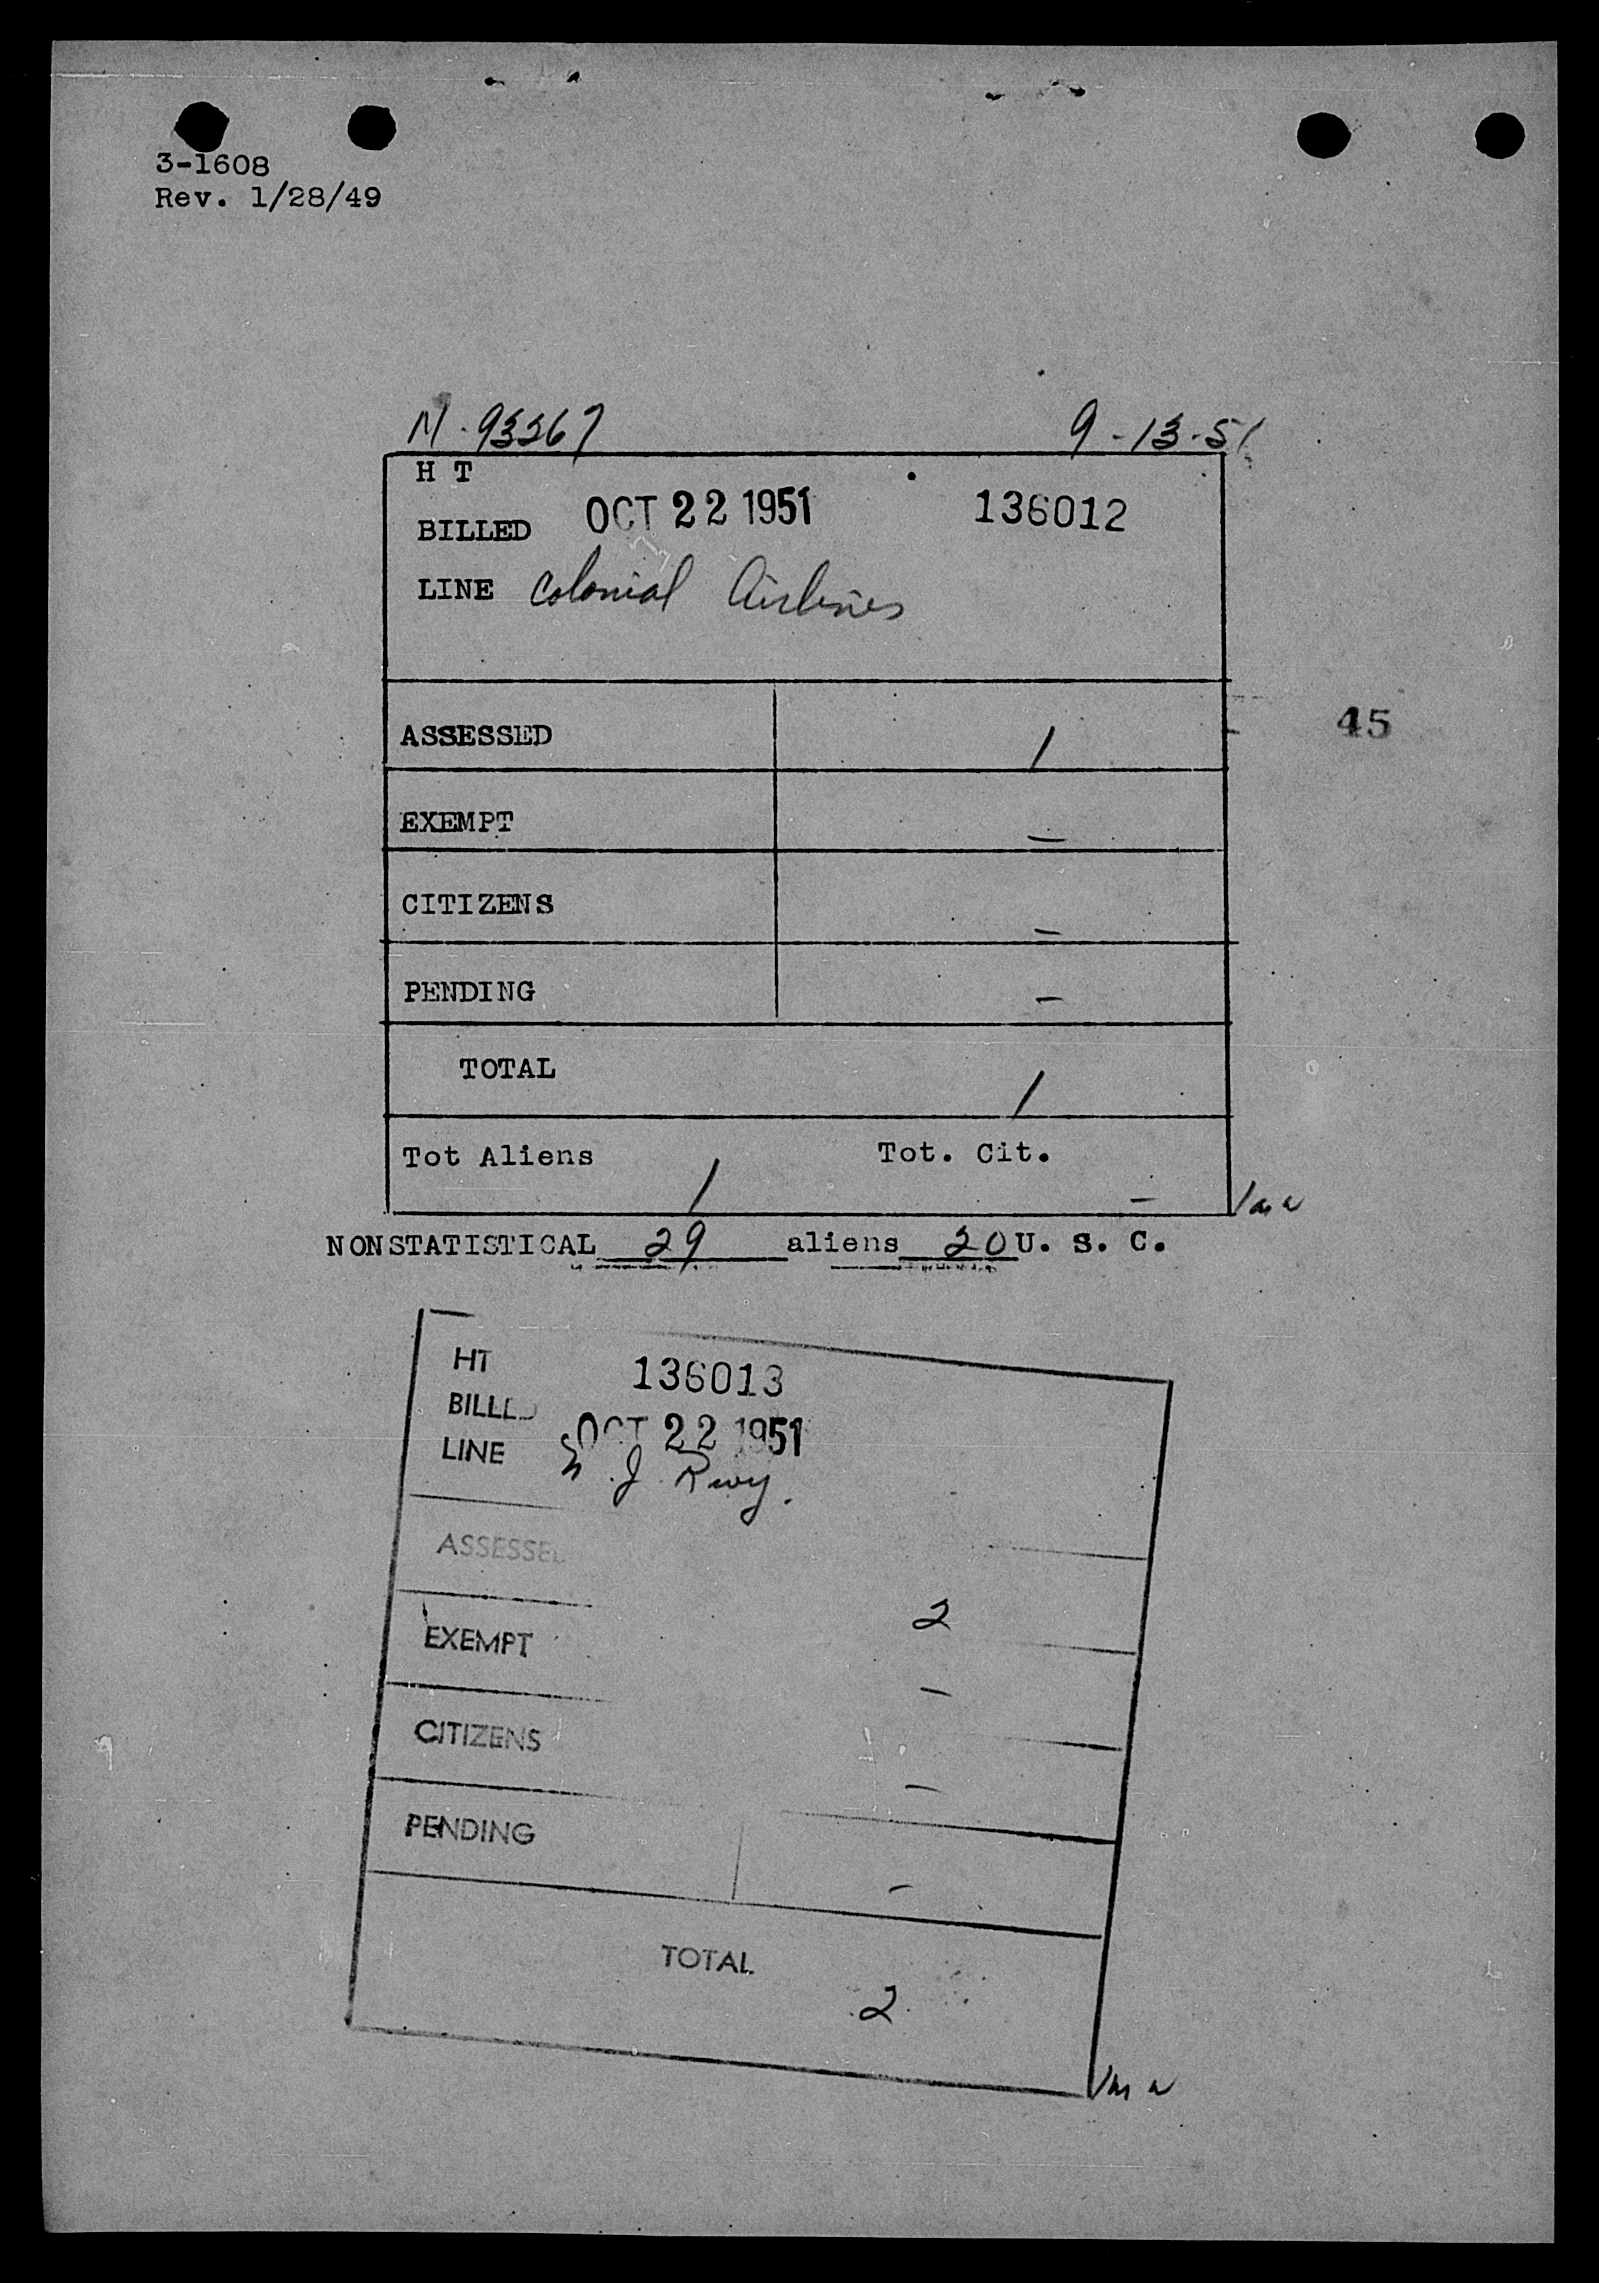 3-1608
Rev. 1/28/49
M-93367 9-13-51
H T
BILLED OCT 22 1951 136012
LINE Colonial Airlines
ASSESSED 1
45
EXEMPT —
CITIZENS —
PENDING —
TOTAL 1
Tot Aliens 1 Tot. Cit. —
NONSTATISTICAL 29 aliens 20 U. S. C.
HT 136013
BILLED OCT 22 1951
LINE J. Rwy.
ASSESSED 2
EXEMPT —
CITIZENS —
PENDING —
TOTAL 2